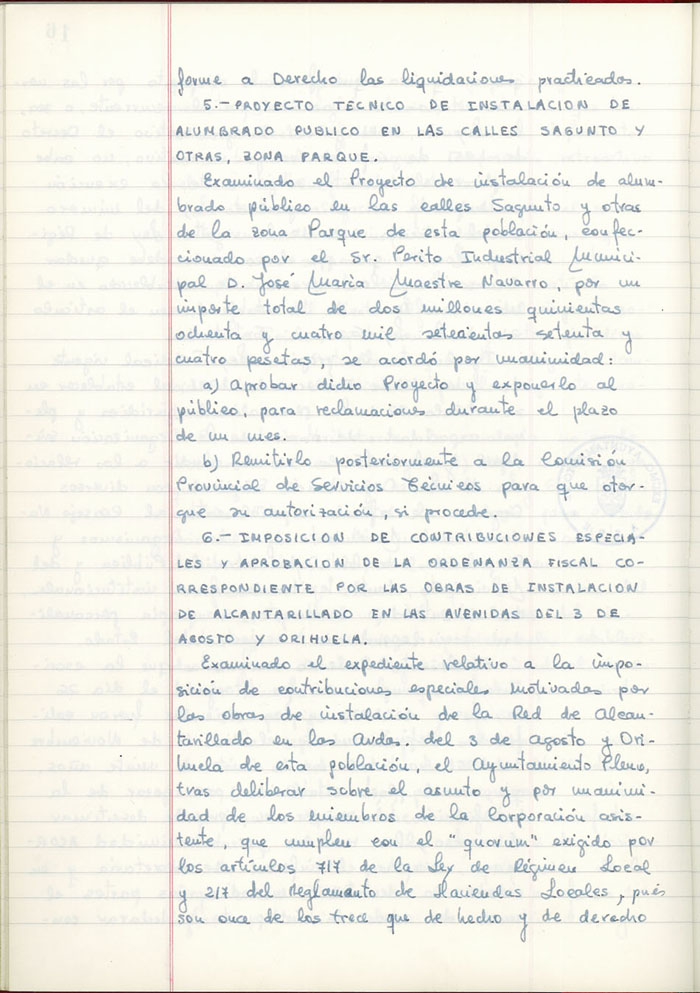 forme a Derecho las liquidaciones practicadas.
5.- PROYECTO TECNICO DE INSTALACION DE
ALUMBRADO PUBLICO EN LAS CALLES SAGUNTO Y
OTRAS, ZONA PARQUE.
Examinado el Proyecto de instalación de alum-
brado público en las calles Sagunto y otras
de la zona Parque de esta población, confec-
cionado por el Sr. Perito Industrial Munici-
pal D. José María Maestre Navarro, por un
importe total de dos millones quinientas
ochenta y cuatro mil setecientas setenta y
cuatro pesetas, se acordó por unanimidad:
a) Aprobar dicho Proyecto y exponerlo al
público, para reclamaciones durante el plazo
de un mes.
b) Remitirlo posteriormente a la Comisión
Provincial de Servicios Técnicos para que otor-
gue su autorización, si procede.
6.- IMPOSICION DE CONTRIBUCIONES ESPECIA-
LES Y APROBACION DE LA ORDENANZA FISCAL CO-
RRESPONDIENTE POR LAS OBRAS DE INSTALACION
DE ALCANTARILLADO EN LAS AVENIDAS DEL 3 DE
AGOSTO Y ORIHUELA.
Examinado el expediente relativo a la impo-
sición de contribuciones especiales motivadas por
las obras de instalación de la Red de Alcan-
tarillado en las Avdas. del 3 de Agosto y Ori-
huela de esta población, el Ayuntamiento Pleno,
tras deliberar sobre el asunto y por unanimi-
dad de los miembros de la Corporación asis-
tente, que cumplen con el "quorum" exigido por
los artículos 717 de la Ley de Régimen Local
y 217 del Reglamento de Haciendas Locales, pués
son once de los trece que de hecho y de derecho